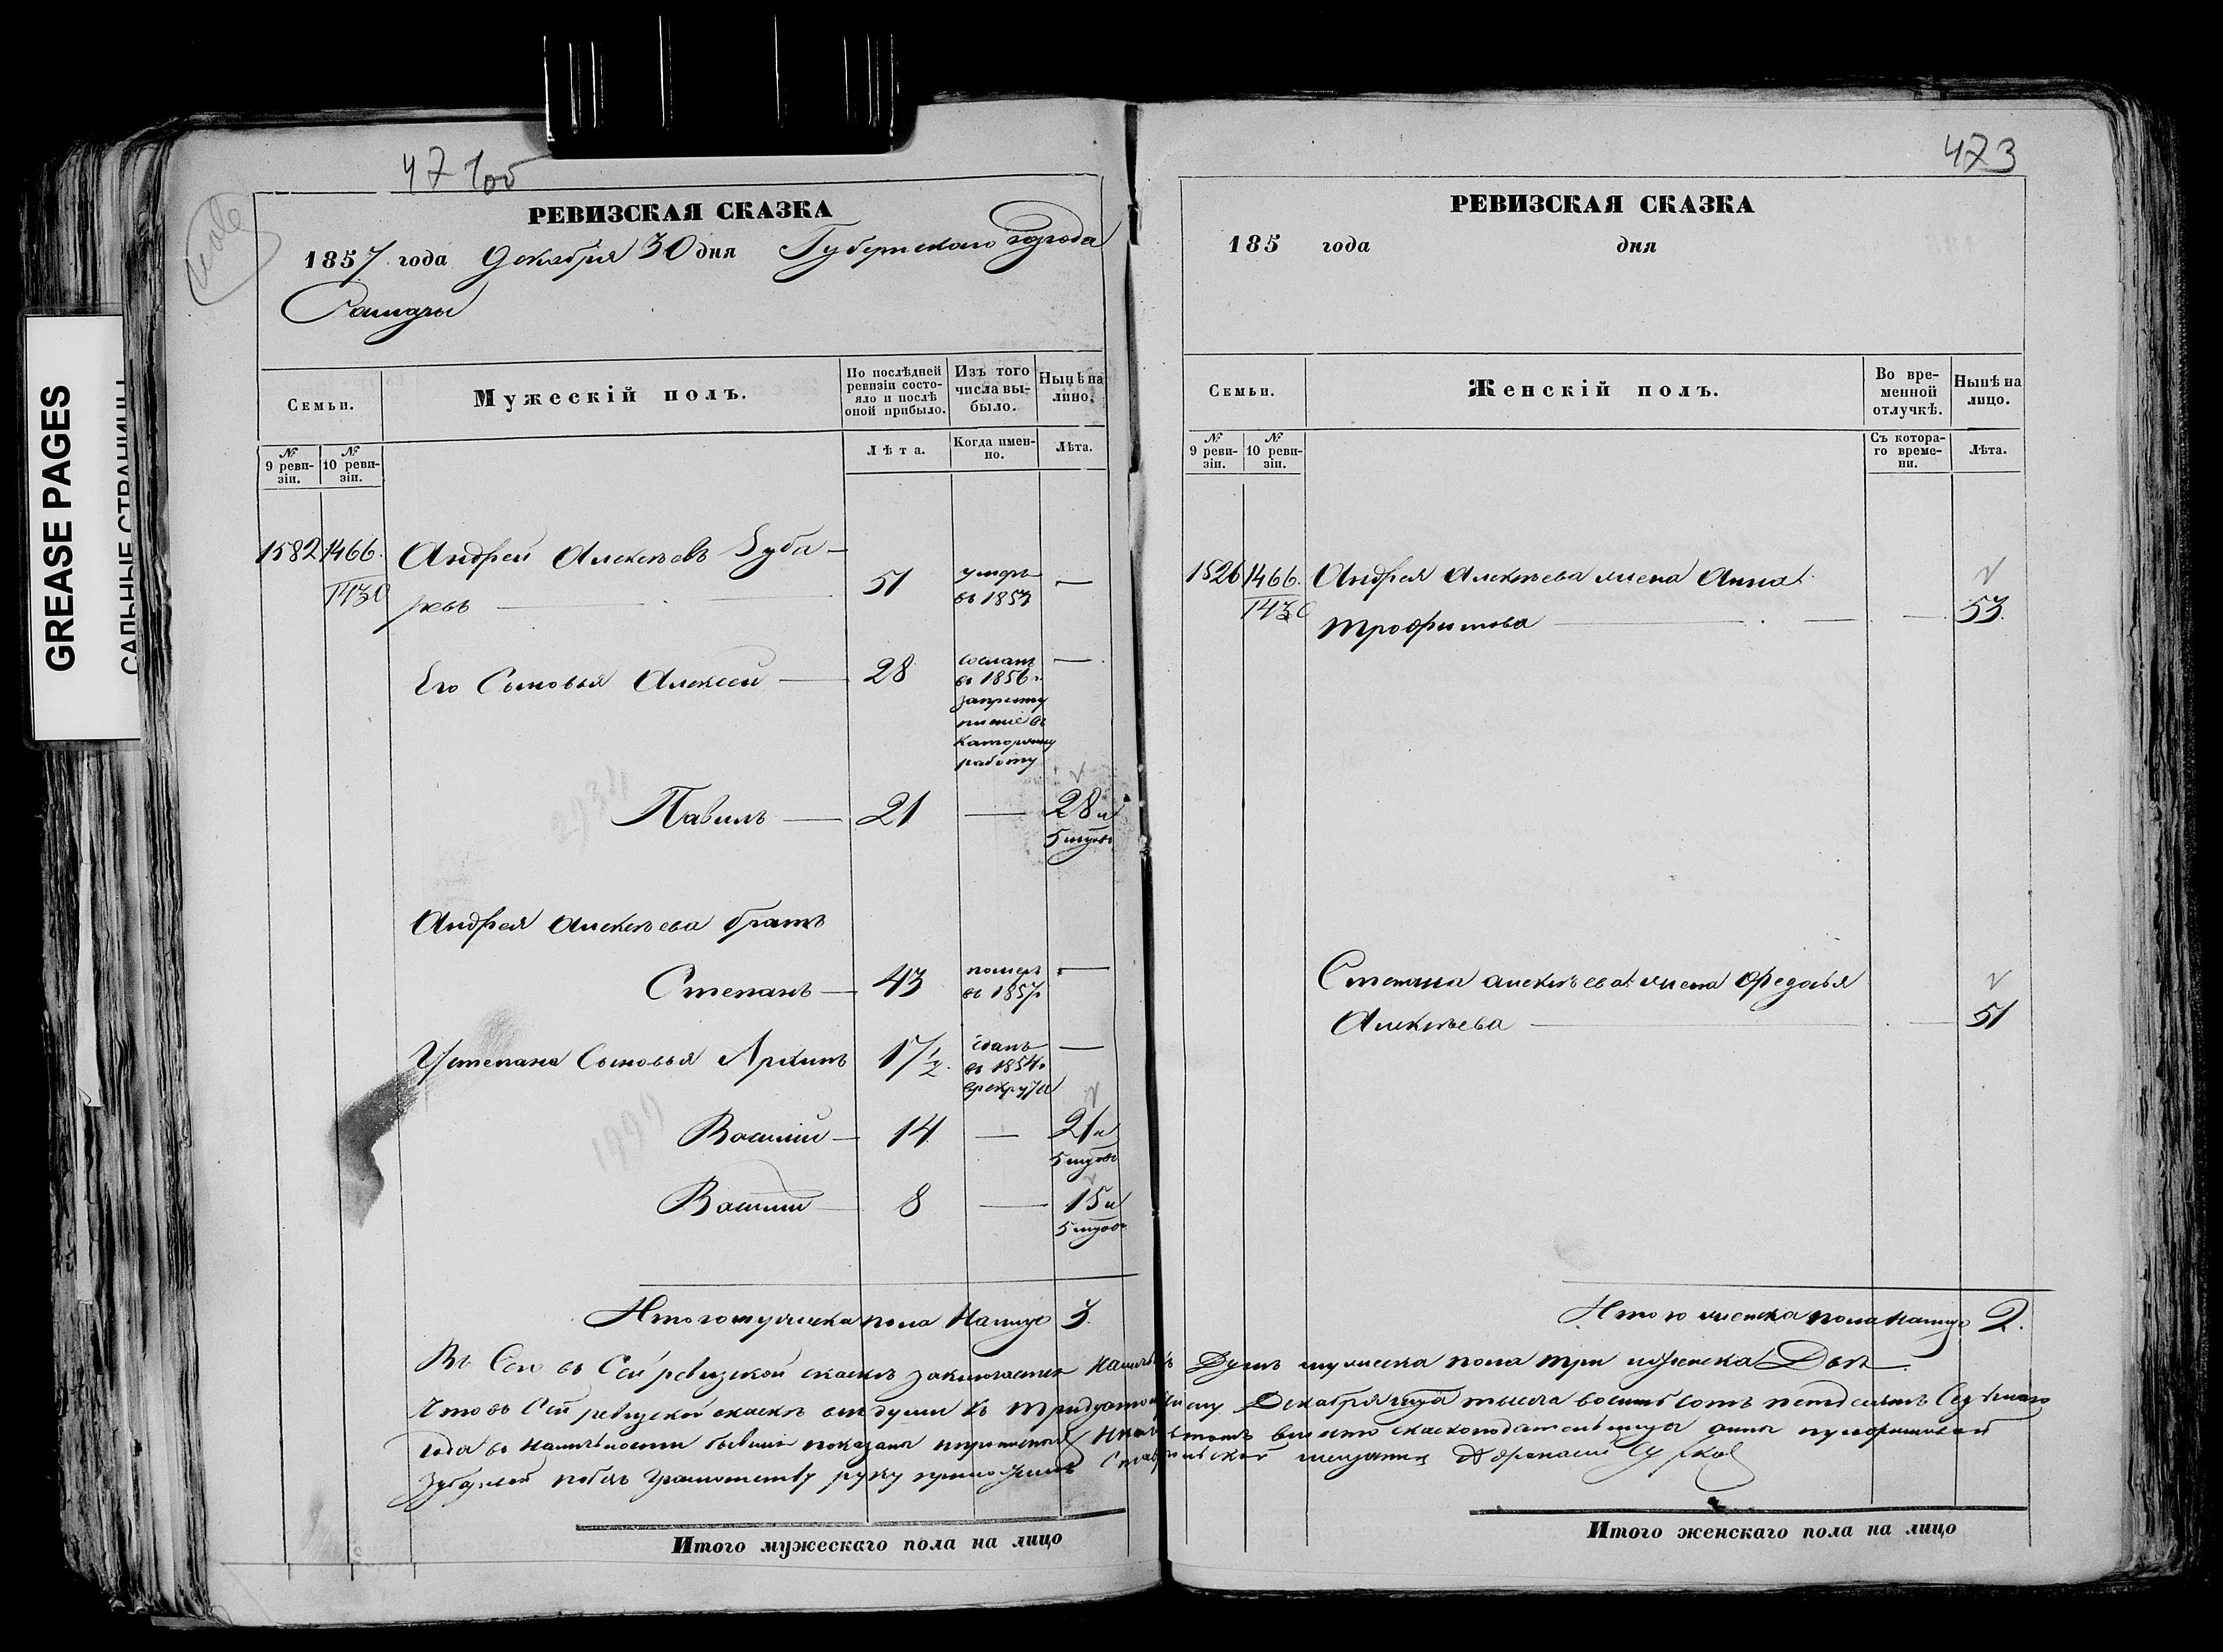 GREASE PAGES
САЛЬНЫЕ СТРАНИЦЫ
47 об
РЕВИЗСКАЯ СКАЗКА
1857 года Декабря 30 дня Губернскаго города
Самары
Семьи.
Мужескій полъ.
По послѣдней ревизіи состояло и послѣ оной прибыло.
Изъ того числа выбыло.
Нынѣ на лицо.
№ 9 ревизіи.
№ 10 ревизіи.
Лѣта.
Когда именно.
Лѣта.
1582 1466. Андрей Алексѣевъ Зуба-
1430 ревъ 51 умеръ въ 1853 —
Его Сыновья Алексей — 28 сосланъ въ 1856 г. за преступленіе въ каторжную работу —
Павилъ — 21 — 28 и 5 мцовъ
Андрея Алексѣева братъ
Степанъ — 43 померъ въ 1857 г —
У Степана Сыновья Архипъ 17 1/2 сданъ въ 1854 г. в рекруты —
Василий — 14 — 21 и 5 мцовъ
Василий — 8 — 15 и 5 мцовъ
Итого мужеска пола налицо 3.
Итого мужескаго пола на лицо
473
РЕВИЗСКАЯ СКАЗКА
185 года дня
Семьи.
Женскій полъ.
Во временной отлучкѣ.
Нынѣ на лицо.
№ 9 ревизіи.
№ 10 ревизіи.
Съ котораго времени.
Лѣта.
1526 1466. Андрея Алексѣева жена Анна
1430 Трофимова — 53.
Степана Алексѣева жена Федосья
Алексѣева — 51
Итого женска пола налицо 2.
Въ Сей ревизской сказкѣ заключается налицо Душъ мужеска пола три и женска Двѣ
Что въ Сей ревизской сказкѣ всѣ души къ тридцатому Декабря тысяча восемьсотъ пятьдесятъ Седьмаго
года въ наличности бывшія показаны
руку приложилъ мещанинъ Афанасий
Итого женскаго пола на лицо